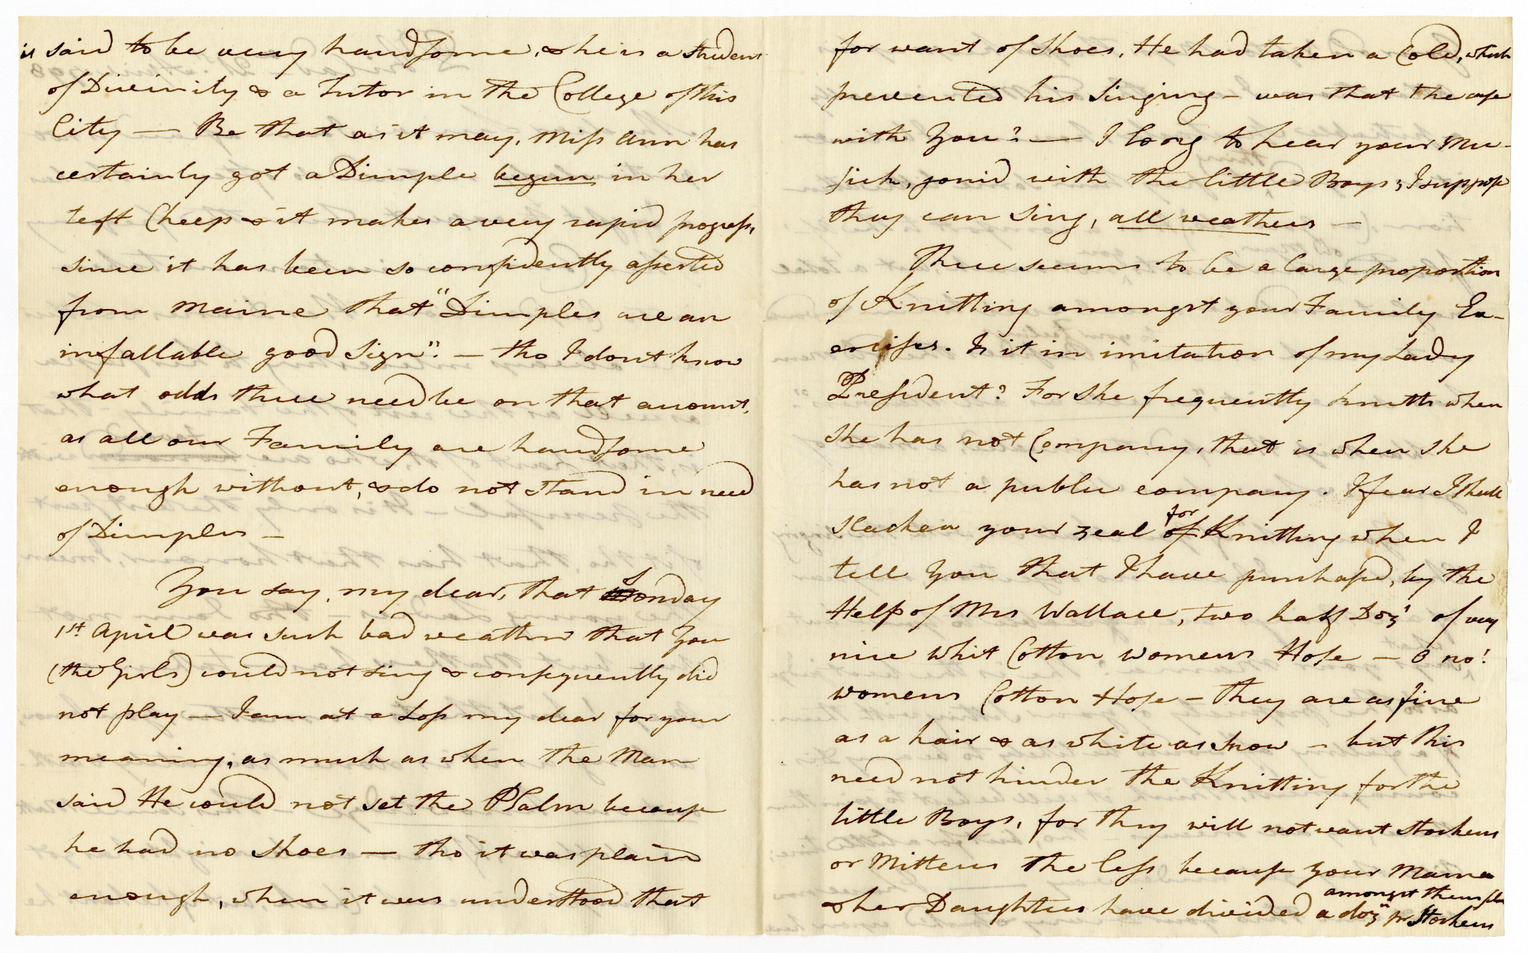 is said to be very handsome, & he is a Student
of Divinity & a Tutor in the College of this
City — Be that as it may, Miss Ann has
certainly got a Dimple begun in her
left Cheep & it makes a very rapid progress,
since it has been so confidently asserted
from Maine that "Dimples are an
infallable good sign". — tho I dont know
what odds there need be on that account,
as all our Family are handsome
enough without, & do not stand in need
of Dimples —
You say, my dear, that Sunday
1st April was such bad weather that you
(the Girls) could not sing & consequently did
not play — I am at a Loss my dear for your
meaning, as much as when the Man
said He could not set the Psalm because
he had no Shoes — tho it was plain
enough, when it was understood that
for want of Shoes, He had taken a Cold, which
prevented his Singing — was that the case
with You? — I long to hear your Mu-
sick, join'd with the little Boys; I suppose
they can Sing, all weathers —
There seems to be a large proportion
of Knitting amongst your Family Ex-
ercises. Is it in imitation of my Lady
President? For She frequently knitts when
She has not Company, that is when She
has not a public company. I fear I shall
slacken your zeal for of Knitting when I
tell You that I have purchased, by the
Help of Mrs Wallace, two half Doz's of very
nice whit Cotton womens Hose — O no!
womens Cotton Hose — they are as fine
as a hair & as white as Snow — but this
need not hinder the Knitting for the
little Boys, for they will not want Stockens
or Mittens the less because your Mama
& her Daughters have divided amongst themselves
a doz'n pr Stockens